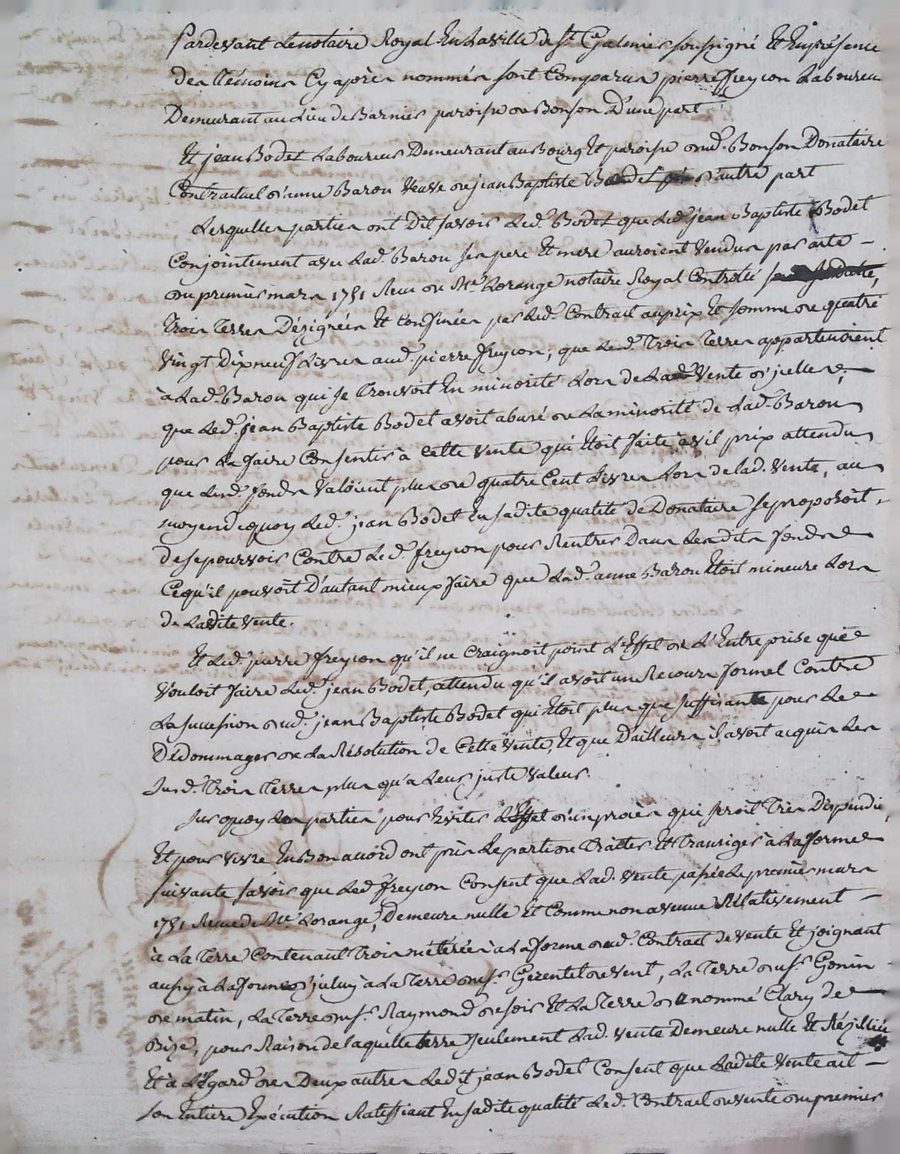 Pardevant Le notaire Royal En La ville de st Galmier soussigné Et En présence
Des Témoins Cy après nommés sont Comparus pierre freyçon Laboureur
Demeurant au Lieu de Barnier paroisse de Bonson D'une part
Et jean Bodet Laboureur Demeurant au Bourg Et paroisse dud. Bonson Donataire
Contractuel d'anne Baron Veuve de jean Baptiste Bodet d'autre part
Lesquelles parties ont Dit savoir Led. Bodet que Led. jean Baptiste Bodet
Conjointement avec Lad. Baron ses pere Et mere auroient Vendus par acte
du premier mars 1751 Reçu de Me. Lorange notaire Royal Controllé
Trois Terres Dézignées Et Confinées par Led. Contrait au prix Et somme de quatre
Vingt Dixneuf Livres aud. pierre freyçon, que Lesd. Trois Terres appartenoient
à Lad. Baron qui se Trouvoit En minorité Lors de Lad. Vente d'jcelles,
que Led. jean Baptiste Bodet avoit abusé de La minorité de Lad. Baron
pour La faire Consentir à Cette Vente qui Etoit faite à vil prix attendu
que Lesd. fonds Valoient plus de quatre Cent Livres Lors de lad. Vente, au
moyen dequoy Led. jean Bodet En sadite qualité de Donataire se proposoit
de se pourvoir Contre Led. freyçon pour Rentrer Dans Lesdits fonds
Cequ'il pouvoit D'autant mieux faire que Lad. anne Baron Etoit mineure Lors
de Ladite Vente.
Et Led. pierre freyçon qu'il ne Craignoit point L'Effet de L'Entreprise que
Vouloit faire Led. jean Bodet, attendu qu'il avoit un Recours formel Contre
La succession dud. jean Baptiste Bodet qui Etoit plus que suffisante pour Le
Dédommager de La Résolution de Cette Vente, Et que D'ailleurs il avoit acquis Les
susd. Trois Terres plus qu'a Leur juste Valeur.
Sur quoy Les parties pour Eviter L'Effet d'un procès qui seroit Très Dispendieux
Et pour vivre En Bon accord ont pris Le parti de Traitter Et Transiger à La forme
suivante savoir que Led. freyçon Consent que Lad. Vente passée Le premier mars
1751 Reçue de Me. Lorange, Demeure nulle Et Comme non avenue Rélativement
à La Terre Contenant Trois métérées à La forme dud. Contrait de Vente Et joignant
La Terre du sr. Gerentet de vent, La Terre du sr. Gonin
de matin, La Terre du sr. Raymond de soir Et La Terre du nommé Clary de
Bize, pour Raison de laquelle terre seulement Lad. Vente Demeure nulle Et Réziliée
Et à L'Egard des Deux autres Ledit jean Bodet Consent que Ladite Vente ait
son Entiere Exécution Ratiffiant En sadite qualité Led. Contrait de vente du premier